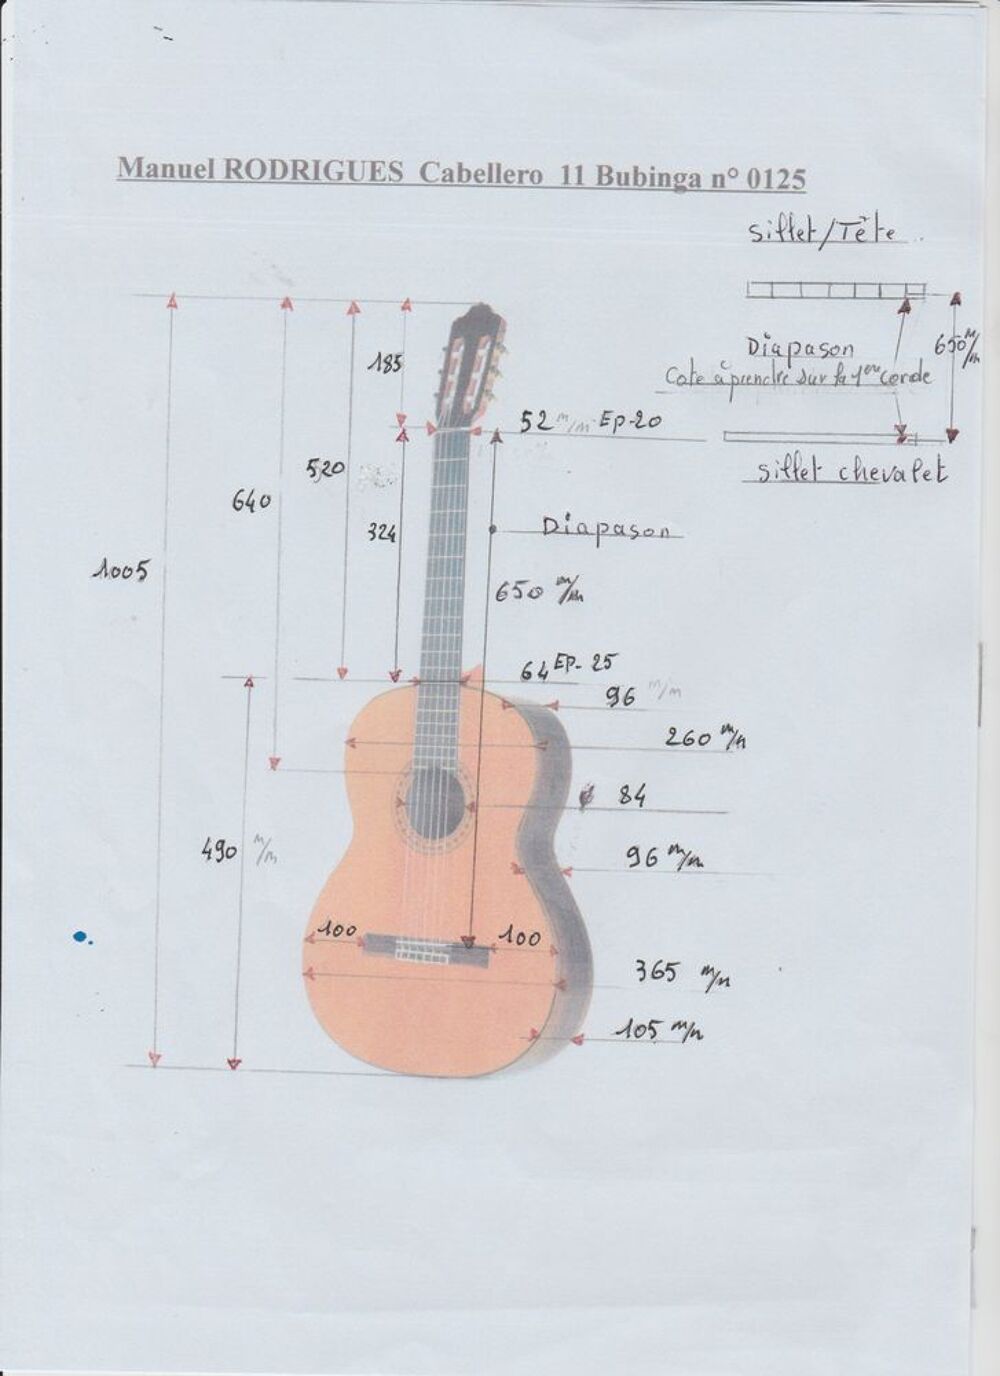 Manuel RODRIGUES Cabellero 11 Bubinga n° 0125
Sillet/Tête
185
Diapason
650 m/m
Cote à prendre sur la 1ere corde
52 m/m Ep-20
sillet chevalet
520
640
324
Diapason
1005
650 m/m
64 EP-25
96 m/m
260 m/m
84
490 m/m
96 m/m
100
100
365 m/m
105 m/m